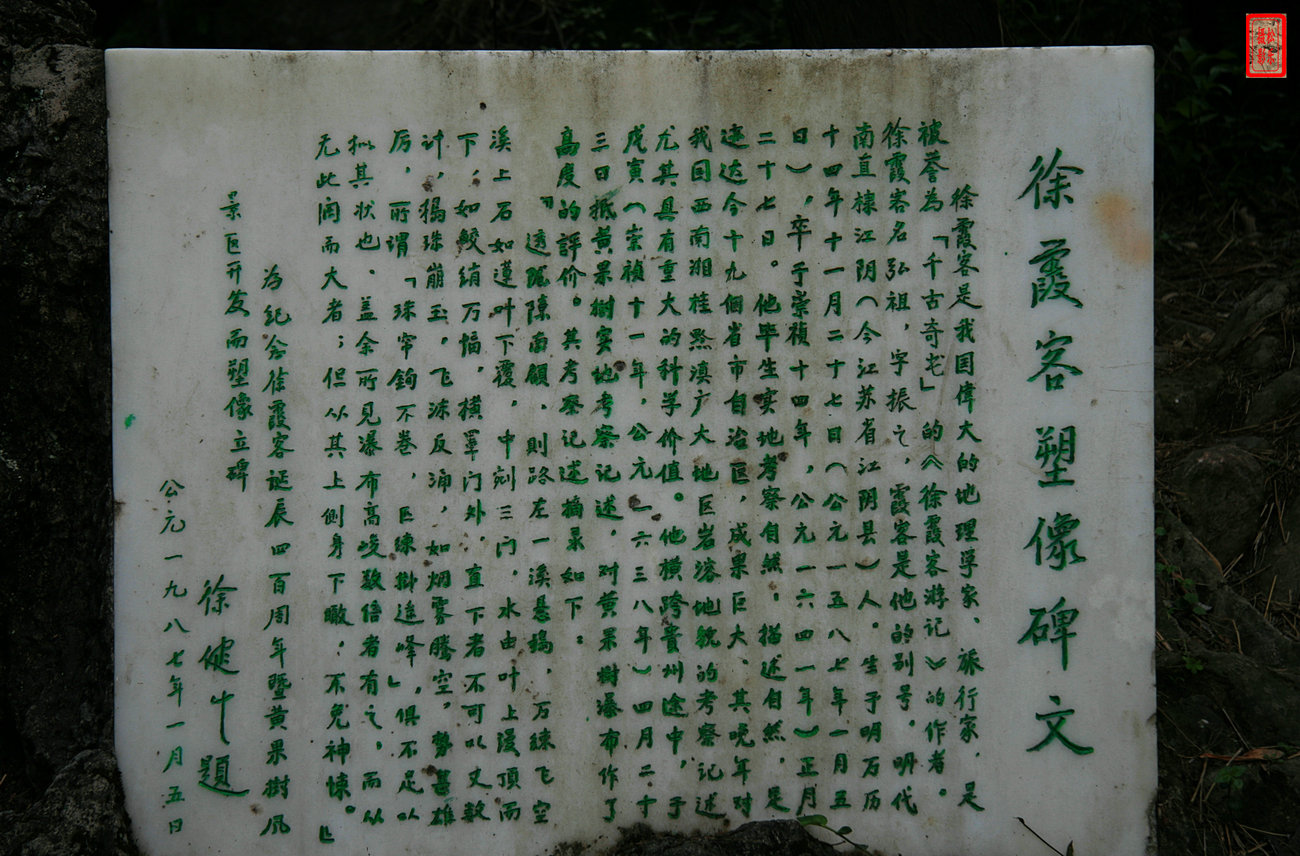 徐霞客塑像碑文
徐霞客是我国偉大的地理学家、旅行家，是
被誉为「千古奇宅」的《徐霞客游记》的作者。
徐霞客名弘祖，字振之，霞客是他的别号，明代
南直棣江阴（今江苏省江阴县）人。生于明万历
十四年十一月二十七日（公元一五八七年一月五
日），卒于崇禎十四年，公元一六四一年）正月
二十七日。他毕生实地考察自然，描述自然，是
迹达今十九個省市自治区，成果巨大、其晚年对
我国西南湘桂黔滇广大地区岩溶地貌的考察记述
尤其具有重大的科学价值。他横跨貴州途中，于
戊寅（崇禎十一年，公元一六三八年）四月二十
三日抵黄果樹实地考察记述，对黄果樹瀑布作了
高度的評价。其考察记述摘录如下：
「透隴隙南顧，则路左一溪悬搗，万練飞空
溪上石如蓮叶下覆，中剜三门，水由叶上漫頂而
下，如鮫绡万幅，横罩门外，直下者不可以丈数
计，搗珠崩玉，飞沫反涌，如烟雾騰空，勢甚雄
厉，所谓「珠帘鉤不卷，匹練掛遥峰」，俱不足以
拟其状也。盖余所见瀑布高峻数倍者有之，而从
无此阔而大者；但从其上侧身下瞰，不免神悚。」
为纪念徐霞客诞辰四百周年暨黄果樹风
景区开发而塑像立碑
徐健牛題
公元一九八七年一月五日